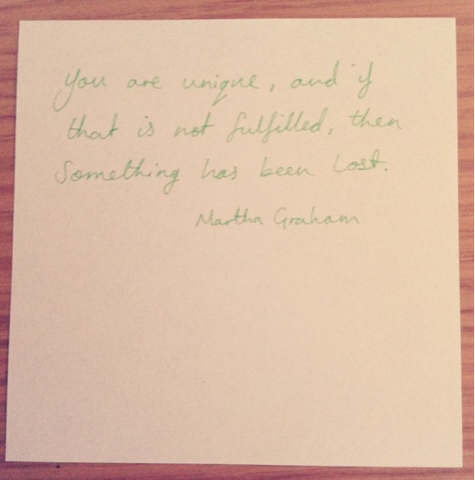 You are unique, and if
that is not fulfilled, then
Something has been lost.
Martha Graham